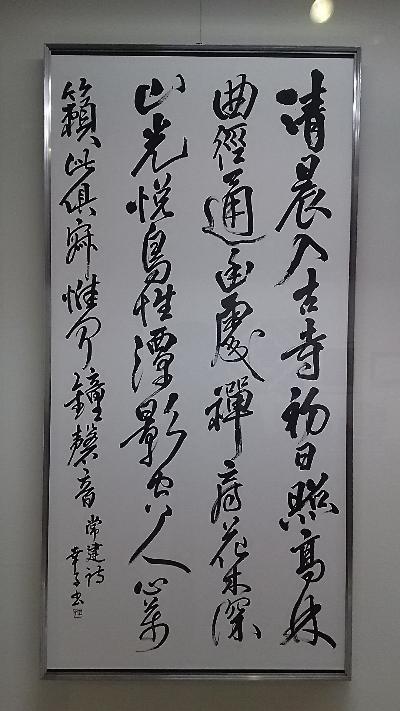 清晨入古寺初日照高林
曲徑通幽處禪房花木深
山光悦鳥性潭影空人心萬
籟此俱寂惟聞鐘磬音
常建詩
幸子書